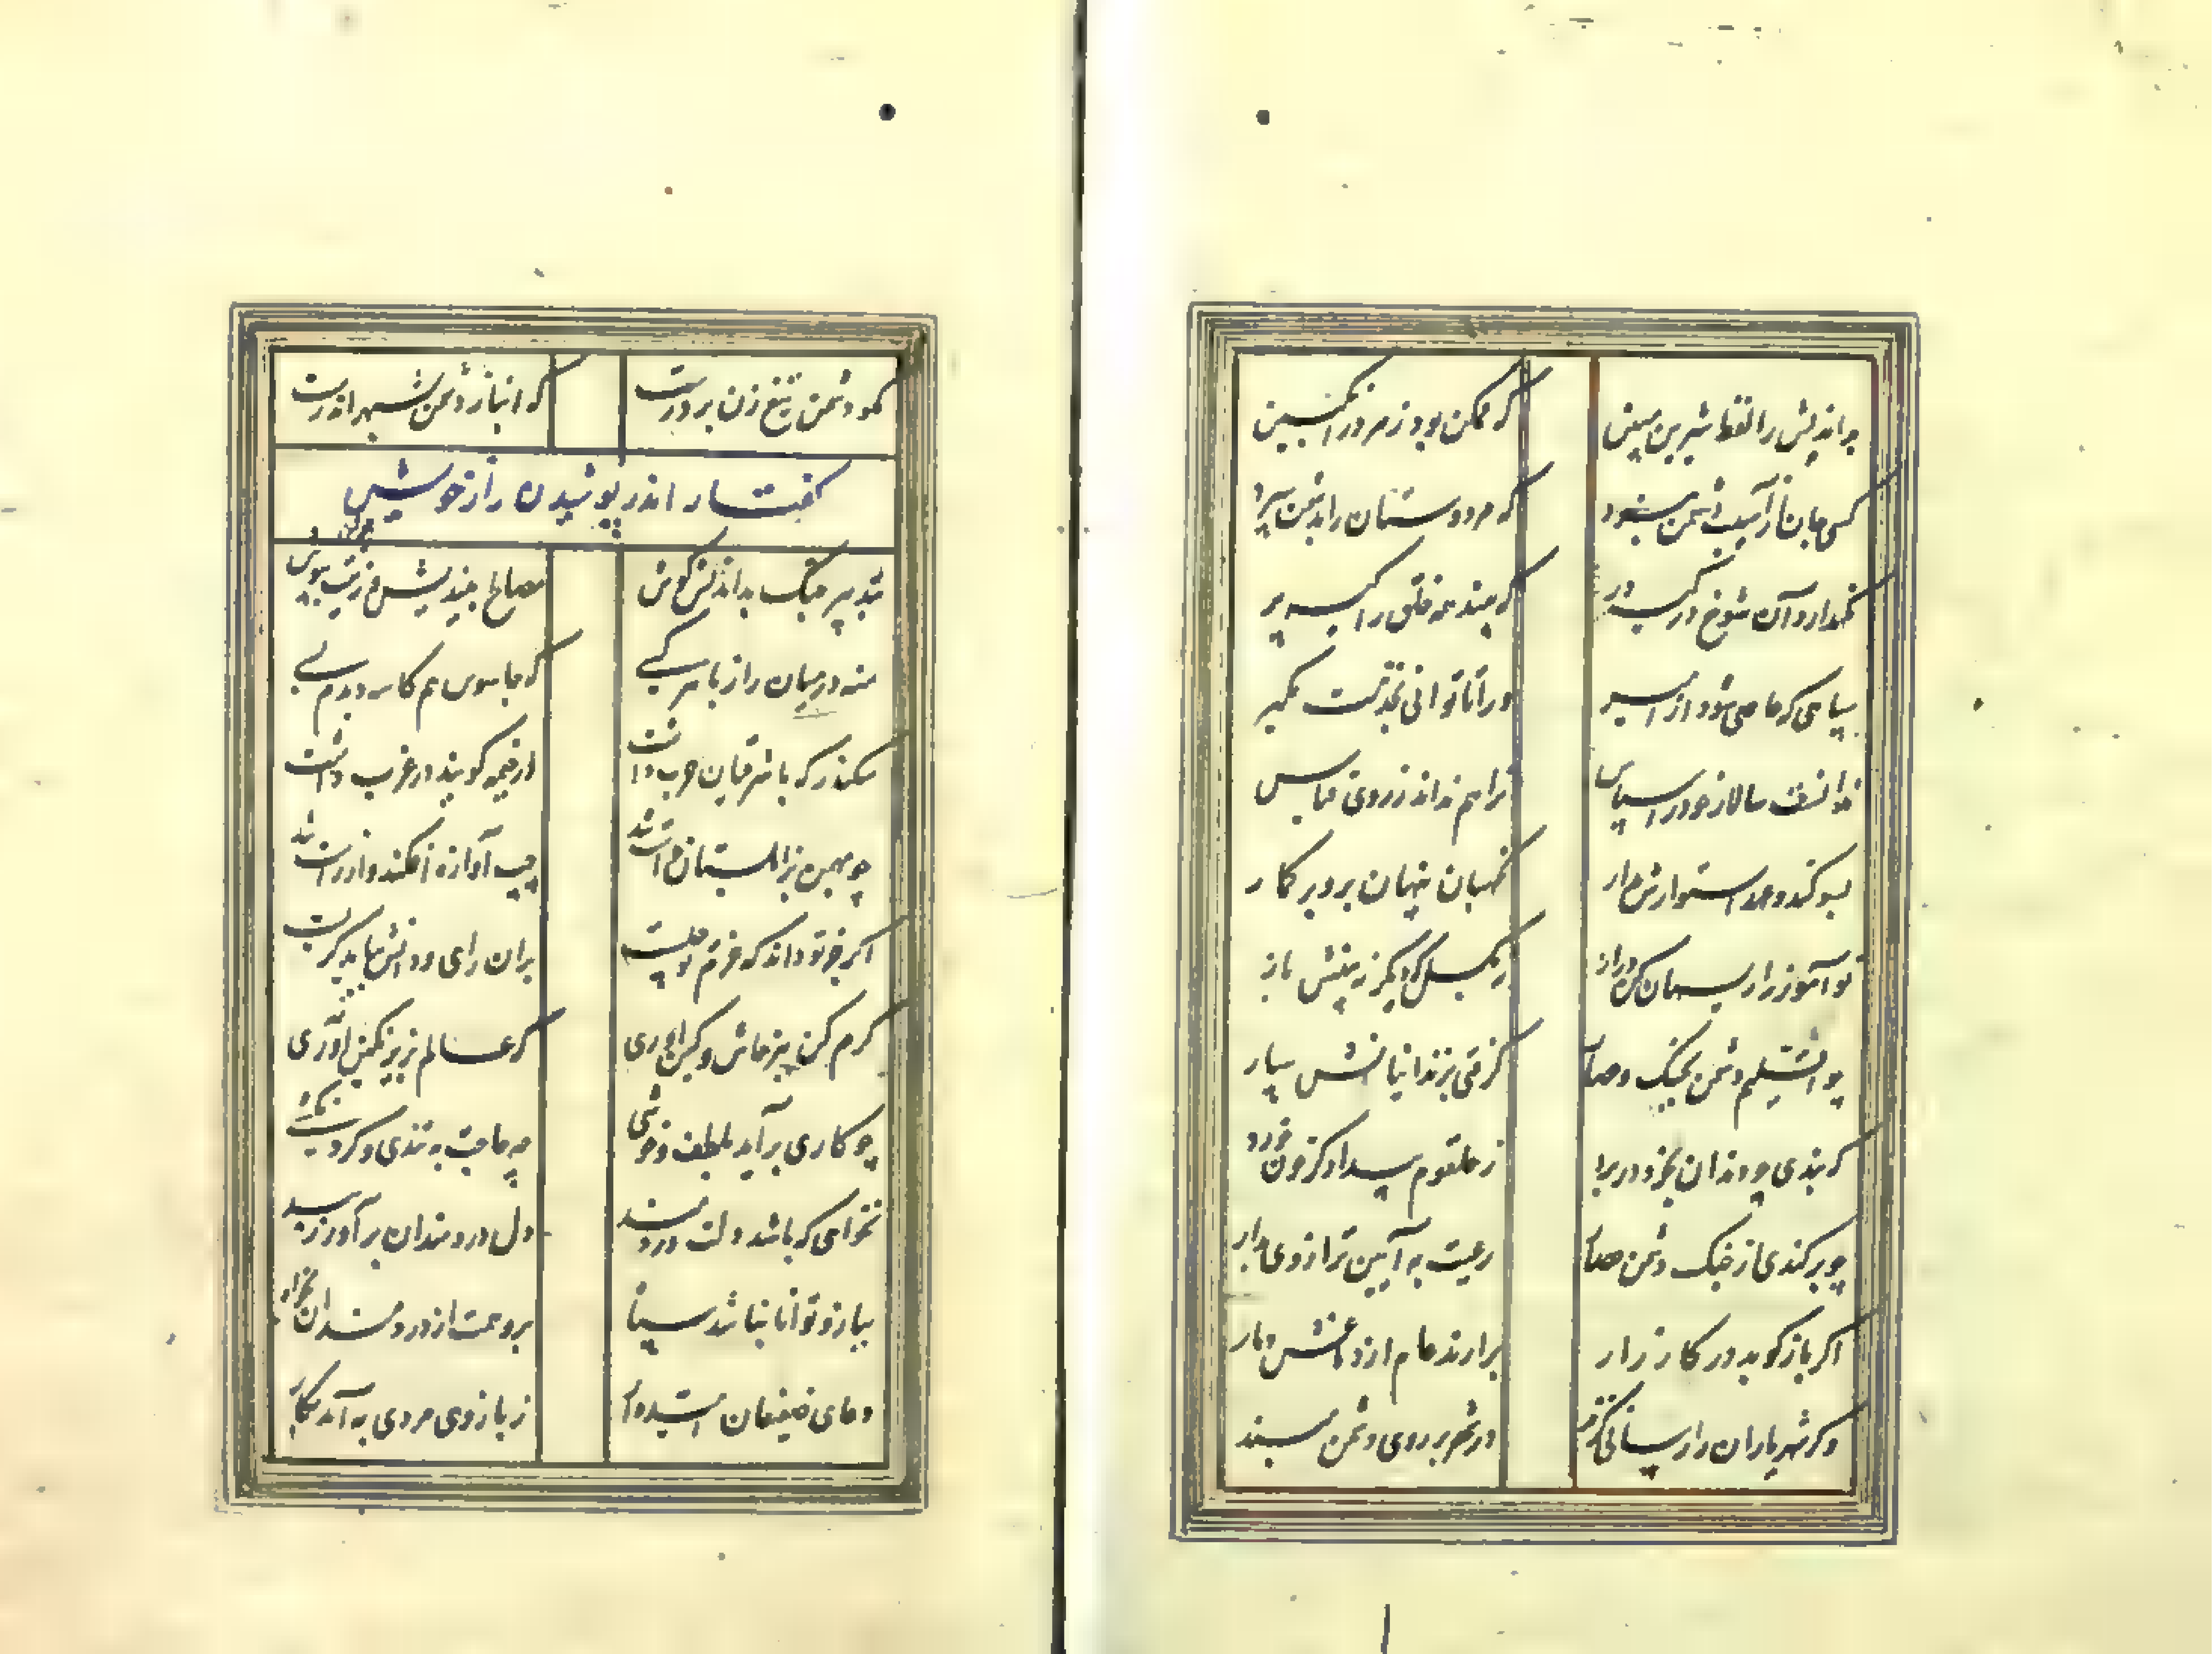 بداندیش را لفظ شیرین مبین که ممکن بود زهر در انگبین
کسی جان از آسیب دشمن ببرد که مر دوستان را بدشمن شمرد
نگهدارد آن شوخ در کیسه در که بیند همه خلق را کیسه بر
سپاهی که عاصی شود از امیر ورا تا توانی بخدمت مگیر
ندانست سالار خود را سپاس ترا هم نداند ز روی قیاس
بسوگند و عهد استوارش مدار نگهبان پنهان برو بر گمار
نوآموز را ریسمان کن دراز نه بگسل که دیگر نبینیش باز
چو اقلیم دشمن بجنگ و حصار گرفتی بزندانیانش سپار
که بندی چو دندان بخون در برد ز حلقوم بیدادگر خون خورد
چو برکندی از جنگ دشمن حصار رعیت به آیین تر از وی بدار
اگر باز کوبد در کارزار برارند عام از دماغش دمار
وگر شهریاران را رسانی گزند در شهر بر روی دشمن مبند
مگو دشمن تیغ زن بر درست که انباز دشمن بشهر اندرست
گفتار اندر پوشیدن راز خویش
بتدبیر جنگ بداندیش کوش مصالح بیندیش و نیت بپوش
منه در میان راز با هر کسی که جاسوس هم کاسه دیدم بسی
سکندر که با شرقیان حرب داشت در خیمه گویند در غرب داشت
چو بهمن بزابلستان خواست شد چپ آوازه افکند و از راست شد
اگر جز تو داند که عزم تو چیست بران رای و دانش بباید گریست
کرم کن نه پرخاش و کین آوری که عالم بزیر نگین آوری
چو کاری برآید بلطف و خوشی چه حاجت به تندی و گردنکشی
نخواهی که باشد دلت دردمند دل دردمندان برآور ز بند
ببازو توانا نباشد سپاه برو همت از دردمندان بخواه
دعای ضعیفان امیدوار ز بازوی مردی به آید بکار